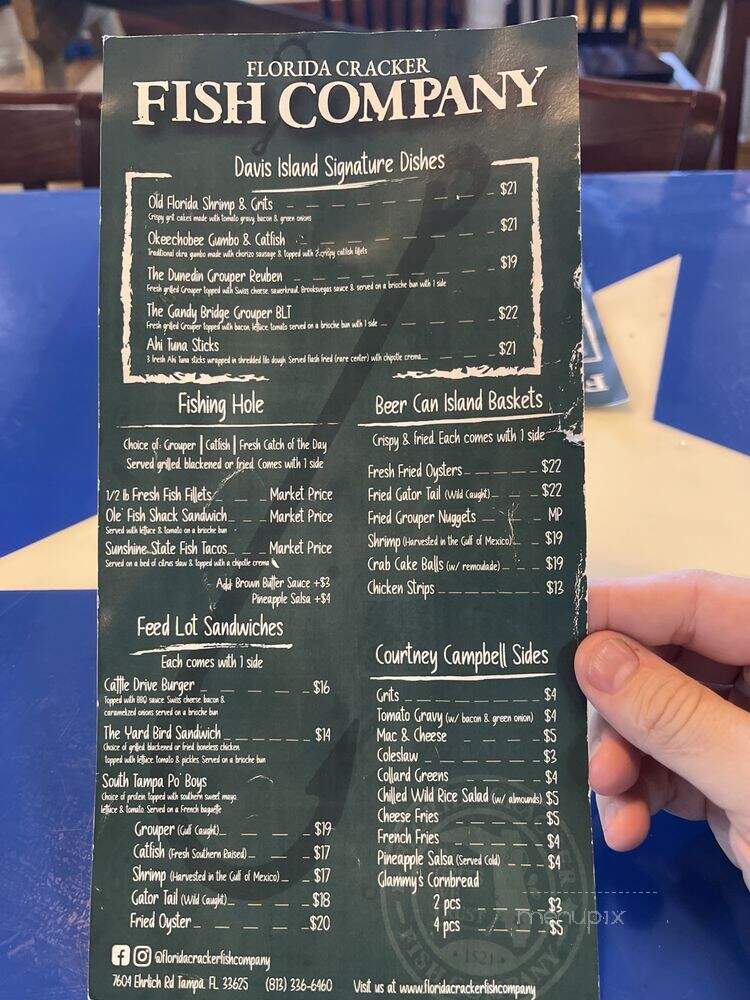 FLORIDA CRACKER
FISH COMPANY
Davis Island Signature Dishes
Old Florida Shrimp & Grits $21
Crispy grit cakes made with tomato gravy, bacon & green onions
Okeechobee Gumbo & Catfish $21
Traditional okra gumbo made with chorizo sausage & topped with 2 crispy catfish fillets
The Dunedin Grouper Reuben $19
Fresh grilled Grouper topped with Swiss cheese, sauerkraut, Brooksvegas sauce & served on a brioche bun with 1 side
The Gandy Bridge Grouper BLT $22
Fresh grilled Grouper topped with bacon, lettuce, tomato served on a brioche bun with 1 side
Ahi Tuna Sticks
3 fresh Ahi Tuna sticks wrapped in shredded filo dough. Served flash fried (rare center) with chipotle crema $21
Fishing Hole
Choice of: Grouper | Catfish | Fresh Catch of the Day
Served grilled, blackened or fried. Comes with 1 side
1/2 lb Fresh Fish Fillets Market Price
Ole' Fish Shack Sandwich Market Price
Served with lettuce & tomato on a brioche bun
Sunshine State Fish Tacos Market Price
Served on a bed of citrus slaw & topped with a chipotle crema
Add Brown Butter Sauce +$3
Pineapple Salsa +$4
Feed Lot Sandwiches
Each comes with 1 side
Cattle Drive Burger $16
Topped with BBQ sauce, Swiss cheese, bacon &
caramelized onions served on a brioche bun
The Yard Bird Sandwich $14
Choice of grilled, blackened or fried boneless chicken
topped with lettuce, tomato & pickles. Served on a brioche bun
South Tampa Po' Boys
Choice of protein, topped with southern sweet mayo,
lettuce & tomato. Served on a French baguette
Grouper (Gulf Caught) $19
Catfish (Fresh Southern Raised) $17
Shrimp (Harvested in the Gulf of Mexico) $17
Gator Tail (Wild Caught) $18
Fried Oyster $20
Beer Can Island Baskets
Crispy & fried. Each comes with 1 side
Fresh Fried Oysters $22
Fried Gator Tail (Wild Caught) $22
Fried Grouper Nuggets MP
Shrimp (Harvested in the Gulf of Mexico) $19
Crab Cake Balls (w/ remoulade) $19
Chicken Strips $13
Courtney Campbell Sides
Grits $4
Tomato Gravy (w/ bacon & green onion) $4
Mac & Cheese $5
Coleslaw $3
Collard Greens $4
Chilled Wild Rice Salad (w/ almounds) $5
Cheese Fries $5
French Fries $4
Pineapple Salsa (Served Cold) $4
Glammy's Cornbread
2 pcs $3
4 pcs $5
menupix
@floridacrackerfishcompany
7604 Ehrlich Rd Tampa, FL 33625 (813) 336-6460 Visit us at www.floridacrackerfishcompany